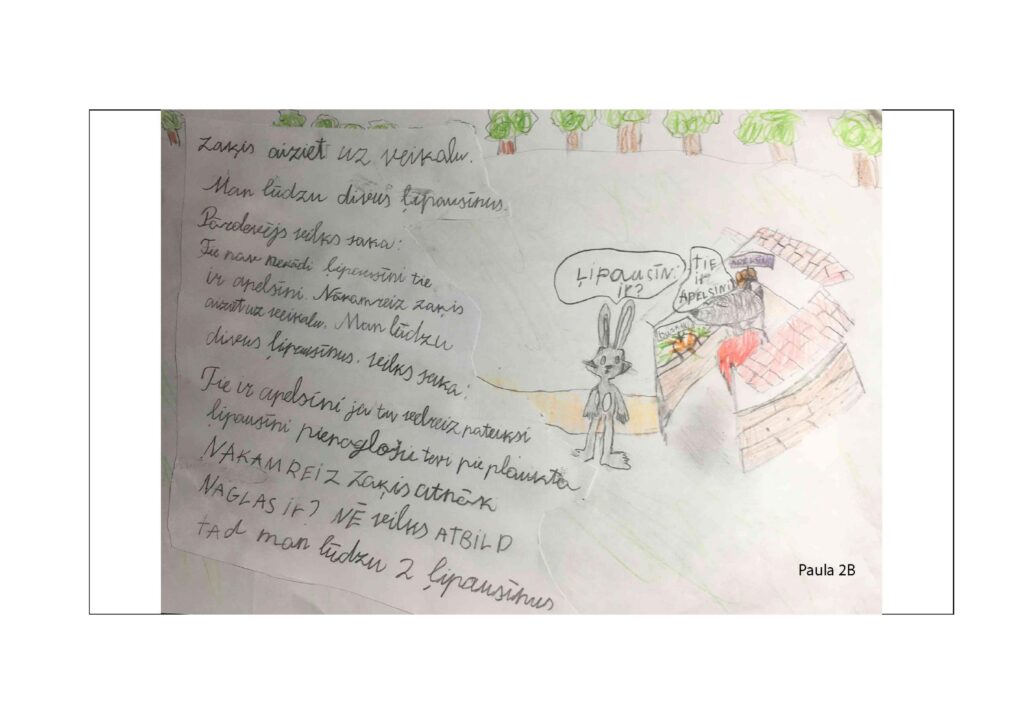 Zaķis aiziet uz veikalu.
Man lūdzu divus ļipausīnus.
Pārdevējs vilks saka:
Tie nav nekādi ļipausīni tie
ir apelsīni. Nākamreiz zaķis
aiziet uz veikalu. Man lūdzu
divus ļipausīnus. vilks saka:
Tie ir apelsīni ja tu vēlreiz pateiksi
ļipausīni pienaglošu tevi pie plaukta
NĀKAMREIZ Zaķis atnāk
NAGLAS IR? NĒ vilks ATBILD
TAd man lūdzu 2 ļipausīnus
ĻIPAUSĪNI
IR?
TIE
IR
APELSĪNI
APELSĪNI
BURKĀNI
Paula 2B